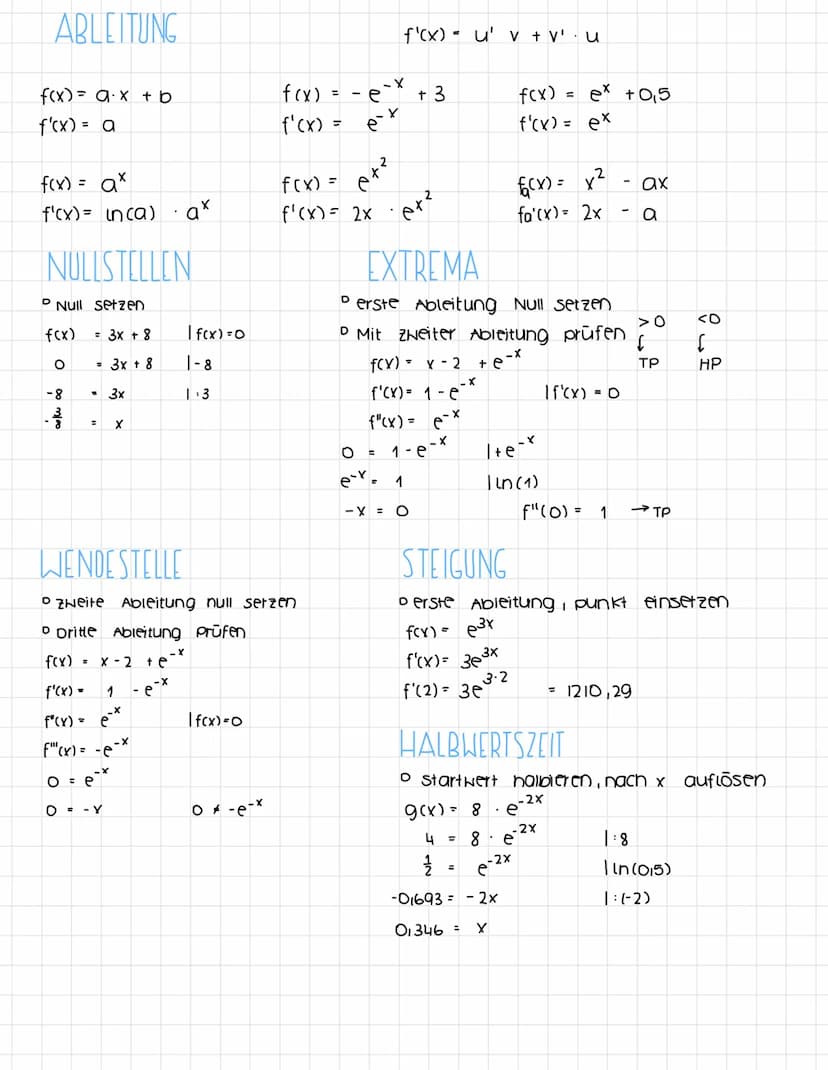 ABLEITUNG
f'(x) = u' v + v' · u
f(x) = a·x + b
f'(x) = a
f(x) = -e^-x + 3
f'(x) = e^-x
f(x) = e^x + 0,5
f'(x) = e^x
f(x) = a^x
f'(x) = ln(a) · a^x
f(x) = e^x^2
f'(x) = 2x · e^x^2
fa(x) = x^2 - ax
fa'(x) = 2x - a
NULLSTELLEN
▫ Null setzen
f(x) = 3x + 8 | f(x)=0
0 = 3x + 8 | -8
-8 = 3x | :3
-3/8 = x
EXTREMA
▫ erste Ableitung Null setzen
▫ Mit zweiter Ableitung prüfen >0 <0
TP HP
f(x) = x - 2 + e^-x
f'(x) = 1 - e^-x | f'(x) = 0
f"(x) = e^-x
0 = 1 - e^-x | + e^-x
e^-x = 1 | ln(1)
-x = 0 f"(0) = 1 → TP
WENDESTELLE
▫ zweite Ableitung null setzen
▫ Dritte Ableitung prüfen
f(x) = x - 2 + e^-x
f'(x) = 1 - e^-x
f"(x) = e^-x | f(x)=0
f'''(x) = -e^-x
0 = e^-x
0 = -x 0 ≠ -e^-x
STEIGUNG
▫ erste Ableitung, punkt einsetzen
f(x) = e^3x
f'(x) = 3e^3x
f'(2) = 3e^3·2 = 1210,29
HALBWERTSZEIT
▫ Startwert halbieren, nach x auflösen
g(x) = 8 · e^-2x
4 = 8 · e^-2x | :8
1/2 = e^-2x | ln(0,5)
-0,693 = -2x | :(-2)
0,346 = x